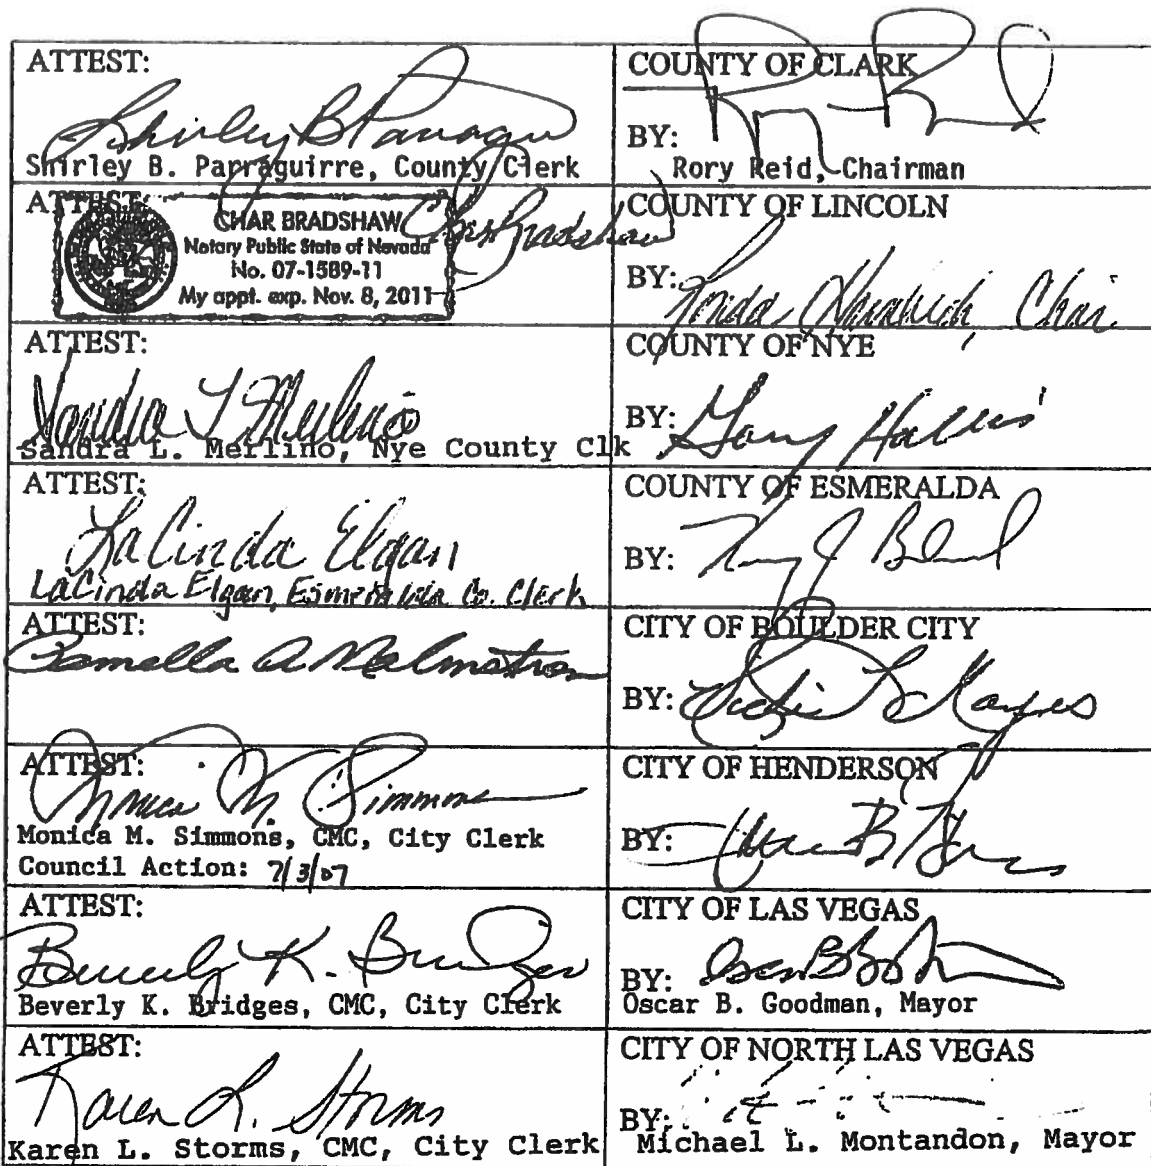 ATTEST:
Shirley B Parragui
Shirley B. Parraguirre, County Clerk
COUNTY OF CLARK
BY:
Rory Reid, Chairman
ATTEST:
CHAR BRADSHAW
Notary Public State of Nevada
No. 07-1589-11
My appt. exp. Nov. 8, 2011
Char Bradshaw
COUNTY OF LINCOLN
BY: Ronda Chair
ATTEST:
Sandra L Merlino
Sandra L. Merlino, Nye County Clk
COUNTY OF NYE
BY: Gary Hollis
ATTEST:
LaCinda Elgan
LaCinda Elgan, Esmeralda Co. Clerk
COUNTY OF ESMERALDA
BY:
ATTEST:
Pamella A Malmstrom
CITY OF BOULDER CITY
BY:
ATTEST:
Monica M. Simmons
Monica M. Simmons, CMC, City Clerk
Council Action: 7/3/07
CITY OF HENDERSON
BY:
ATTEST:
Beverly K. Bridges
Beverly K. Bridges, CMC, City Clerk
CITY OF LAS VEGAS
BY:
Oscar B. Goodman, Mayor
ATTEST:
Karen L. Storms
Karen L. Storms, CMC, City Clerk
CITY OF NORTH LAS VEGAS
BY:
Michael L. Montandon, Mayor